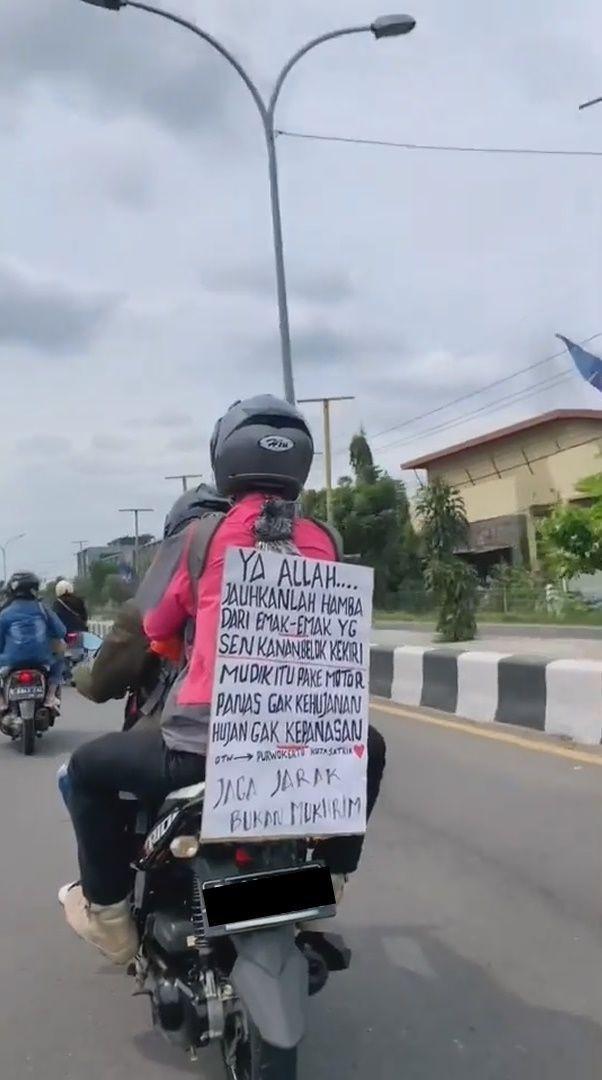 Hiu
YA ALLAH....
JAUHKANLAH HAMBA
DARI EMAK-EMAK YG
SEN KANAN BELOK KEKIRI
MUDIK ITU PAKE MOTOR
PANAS GAK KEHUJANAN
HUJAN GAK KEPANASAN
OTW → PURWOKERTO KOTA SATRIA ❤
JAGA JARAK
BUKAN MUKHRIM